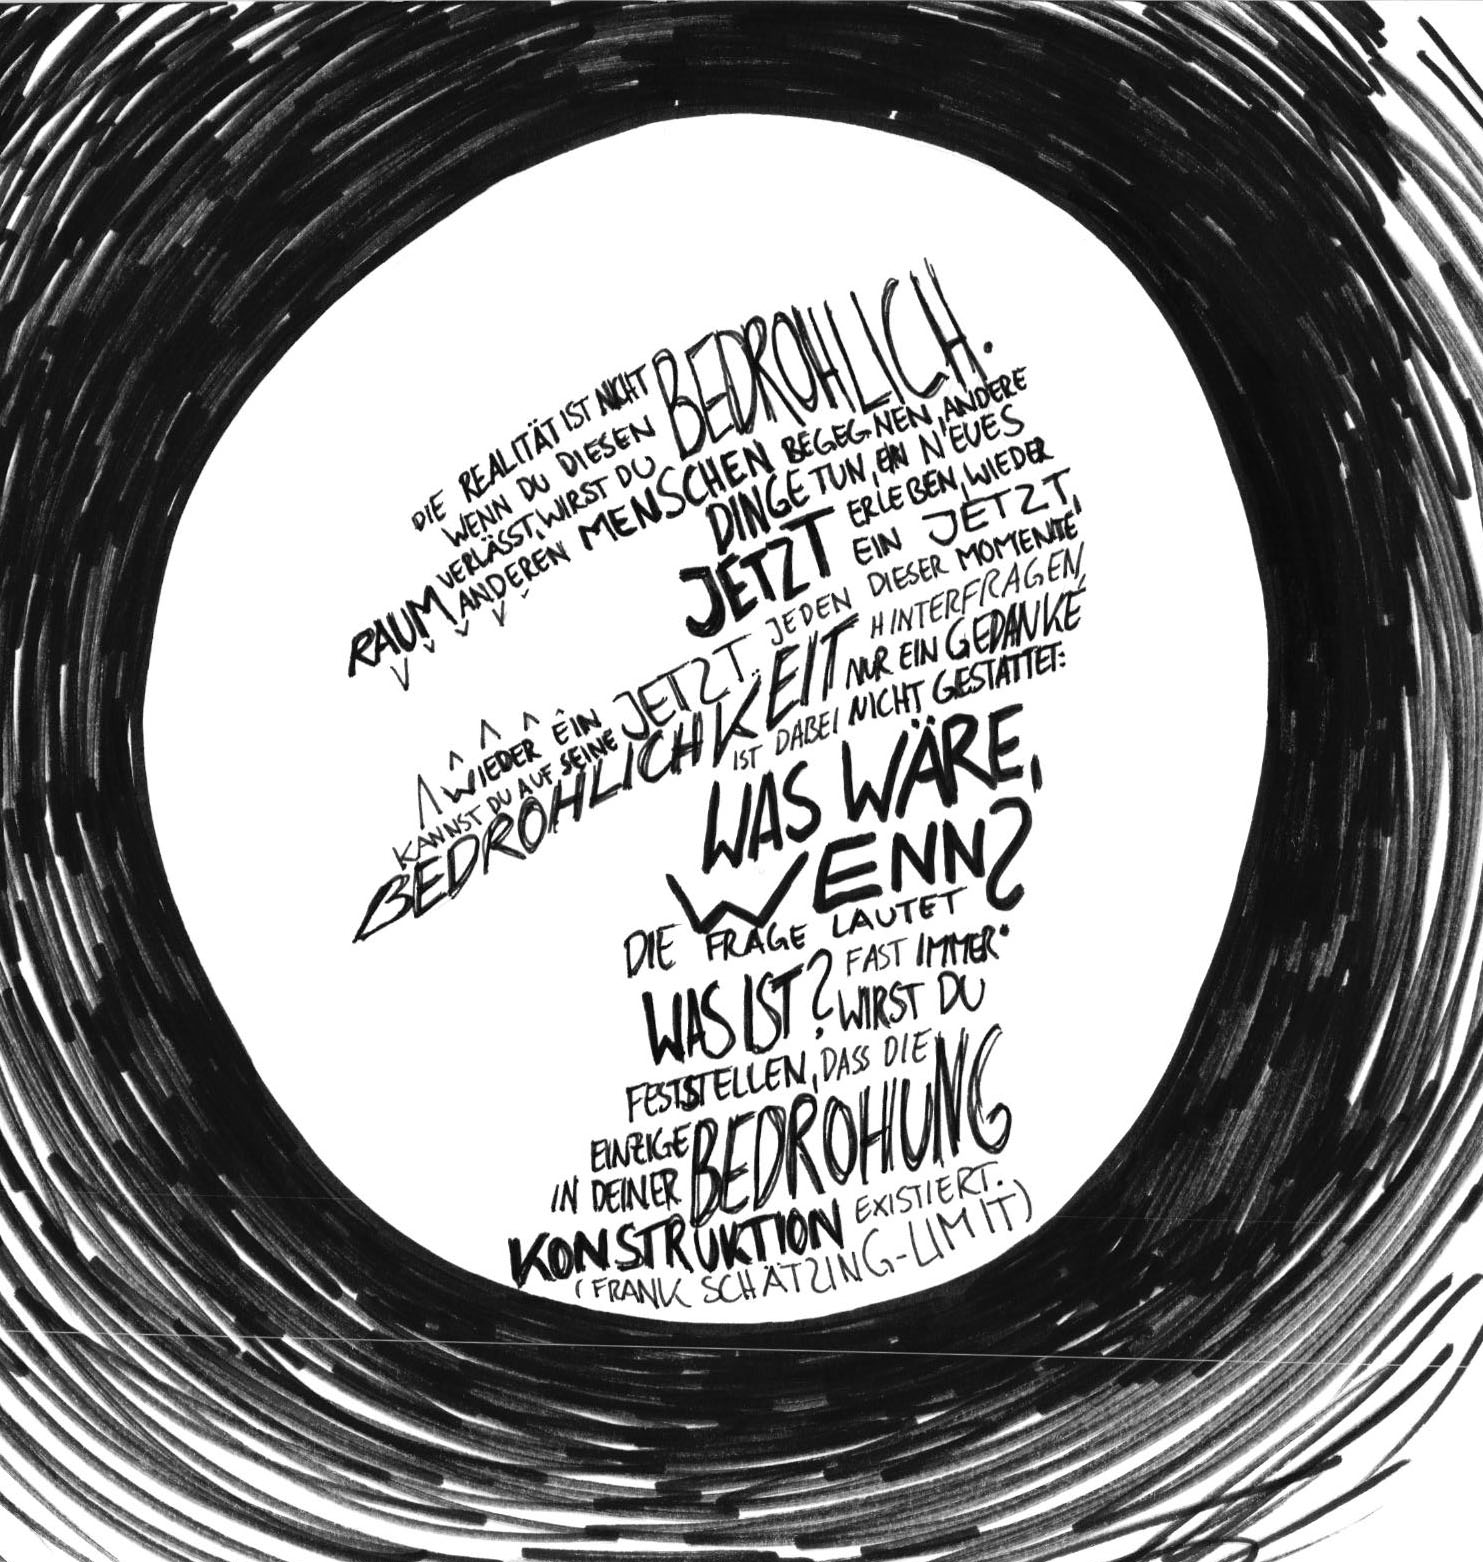 DIE REALITÄT IST NICHT BEDROHLICH.
WENN DU DIESEN
RAUM VERLÄSST, WIRST DU
ANDEREN MENSCHEN BEGEGNEN, ANDERE
DINGE TUN, EIN NEUES
JETZT ERLEBEN, WIEDER
EIN JETZT,
WIEDER EIN JETZT. JEDEN DIESER MOMENTE
KANNST DU AUF SEINE
BEDROHLICHKEIT HINTERFRAGEN,
NUR EIN GEDANKE
IST DABEI NICHT GESTATTET:
WAS WÄRE,
WENN?
DIE FRAGE LAUTET
WAS IST? FAST IMMER
WIRST DU
FESTSTELLEN, DASS DIE
EINZIGE BEDROHUNG
IN DEINER
KONSTRUKTION EXISTIERT.
(FRANK SCHÄTZING-LIMIT)